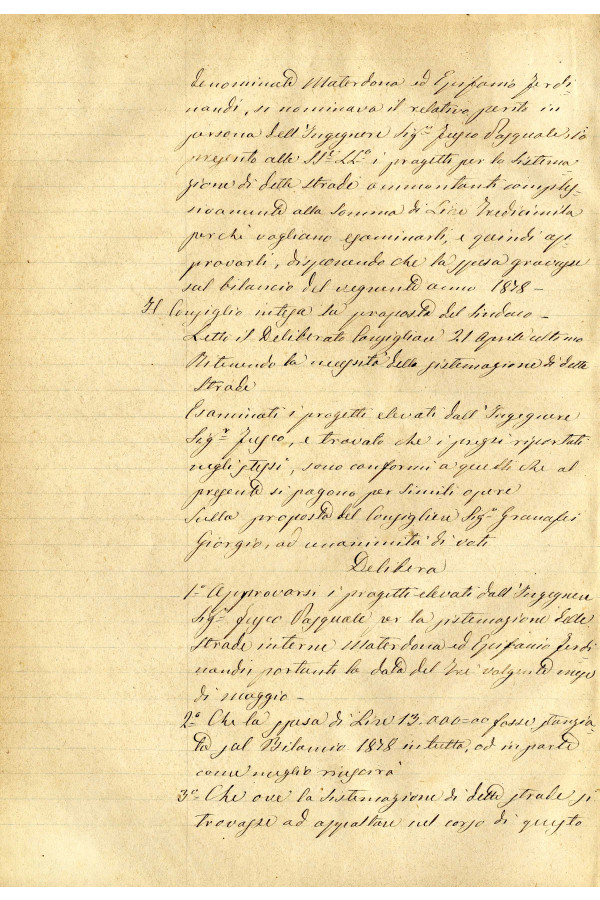 denominate Materdona ed Epifanio Ferdi=
nandi, si nominava il relativo perito in
persona dell'Ingegnere Sig.r Fusco Pasquale, io
presento alle SS.e LL.e i progetti per la sistema=
zione di dette strade ammontanti comples=
sivamente alla somma di Lire Tredicimila
perchè vogliano esaminarli, e quindi ap=
provarli, disponendo che la spesa gravasse
sul bilancio del vegnente anno 1878 =
Il Consiglio intesa la proposta del Sindaco =
Letto il Deliberato Consigliare 21 Aprile ultimo
Ritenendo la necessità della sistemazione di dette
strade
Esaminati i progetti elevati dall'Ingegnere
Sig.r Fusco, e trovato che i prezzi riportati
negli stessi, sono conformi a quelli che al
presente si pagono per simili opere
Sulla proposta del Consigliere Sig.r Granafei
Giorgio, ad unanimità di voti
Delibera
1.o Approvarsi i progetti elevati dall'Ingegnere
Sig.r Fusco Pasquale per la sistemazione delle
strade interne Materdona ed Epifanio Ferdi
nandi, portanti la data del tre volgente mese
di maggio =
2.o Che la spesa di Lire 13.000=00 fosse stanzia=
ta sul Bilancio 1878 in tutto, od in parte
come meglio riuscirà
3.o Che ove la sistemazione di dette strade si
trovasse ad appaltare nel corso di questo